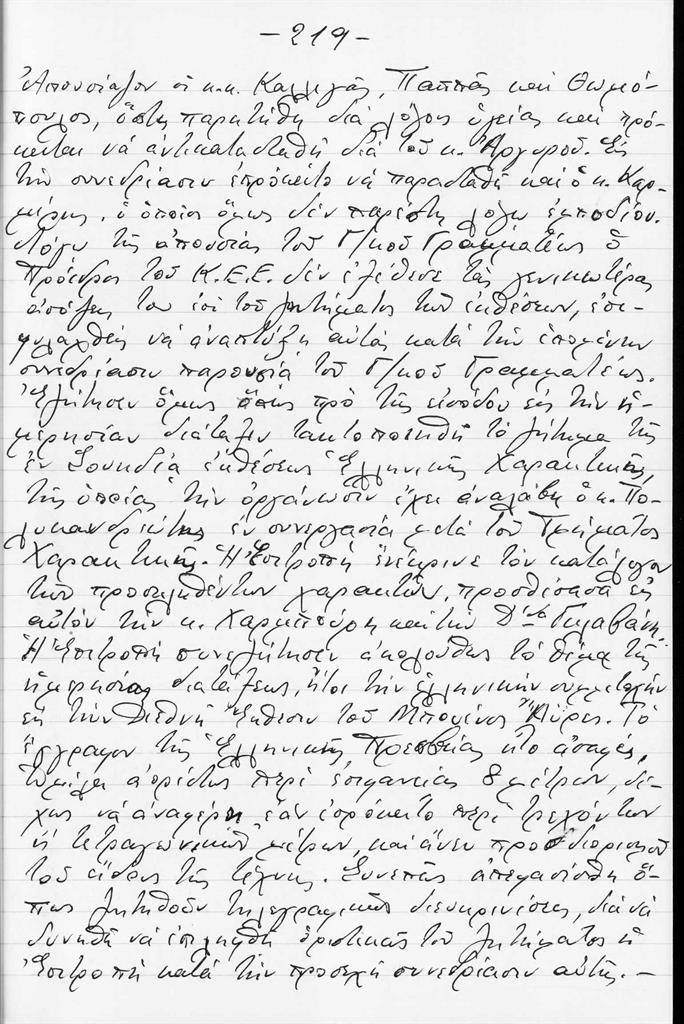 -219-
Ἀπουσίαζον οἱ κ.κ. Καλλιγᾶς, Παππᾶς καὶ Θωμό-
πουλος, ὅστις παρῃτήθη διὰ λόγους ὑγείας καὶ πρό-
κειται νὰ ἀντικατασταθῇ διὰ τοῦ κ. Ἀργυροῦ. Εἰς
τὴν συνεδρίασιν ἐπρόκειτο νὰ παρασταθῇ καὶ ὁ κ. Καρ-
μίρης, ὁ ὁποῖος ὅμως δὲν παρέστη λόγῳ ἐμποδίου.
Λόγῳ τῆς ἀπουσίας τοῦ Γ/κοῦ Γραμματέως ὁ
Πρόεδρος τοῦ Κ.Ε.Ε. δὲν ἐξέθεσε τὰς γενικωτέρας
ἀπόψεις του ἐπὶ τοῦ ζητήματος τῶν ἐκθέσεων, ἐπι-
φυλαχθεὶς νὰ ἀναπτύξῃ αὐτὰς κατὰ τὴν ἑπομένην
συνεδρίασιν παρουσίᾳ τοῦ Γ/κοῦ Γραμματέως.
Ἐζήτησεν ὅμως ὅπως πρὸ τῆς εἰσόδου εἰς τὴν ἡ-
μερησίαν διάταξιν τακτοποιηθῇ τὸ ζήτημα τῆς
ἐν Σουηδίᾳ ἐκθέσεως Ἑλληνικῆς Χαρακτικῆς,
τῆς ὁποίας τὴν ὀργάνωσιν ἔχει ἀναλάβει ὁ κ. Πο-
λυκανδριώτης ἐν συνεργασίᾳ μετὰ τοῦ Τμήματος
Χαρακτικῆς. Ἡ Ἐπιτροπὴ ἐνέκρινε τὸν κατάλογον
τῶν προσκληθέντων χαρακτῶν, προσθέσασα εἰς
αὐτὸν τὴν κ. Χαρμπούρη καὶ τὴν Δ/νίδα
Ἡ Ἐπιτροπὴ συνεζήτησεν ἀκολούθως τὸ θέμα τῆς
ἡμερησίας διατάξεως, ἤτοι τὴν ἑλληνικὴν συμμετοχὴν
εἰς τὴν Διεθνῆ Ἔκθεσιν τοῦ Μπουένος Ἄϋρες. Τὸ
ἔγγραφον τῆς Ἑλληνικῆς Πρεσβείας ἦτο ἀσαφές,
ὡμίλει ἀορίστως περὶ ἐπιφανείας 8 μέτρων, δί-
χως νὰ ἀναφέρῃ ἐὰν ἐπρόκειτο περὶ τρεχόντων
ἢ τετραγωνικῶν μέτρων, καὶ ἄνευ προσδιορισμοῦ
τοῦ εἴδους τῆς τέχνης. Συνεπῶς ἀπεφασίσθη ὅ-
πως ζητηθοῦν τηλεγραφικῶς διευκρινίσεις, διὰ νὰ
δυνηθῇ νὰ ἐπιληφθῇ ὁριστικῶς τοῦ ζητήματος ἡ
Ἐπιτροπὴ κατὰ τὴν προσεχῆ συνεδρίασιν αὐτῆς. —